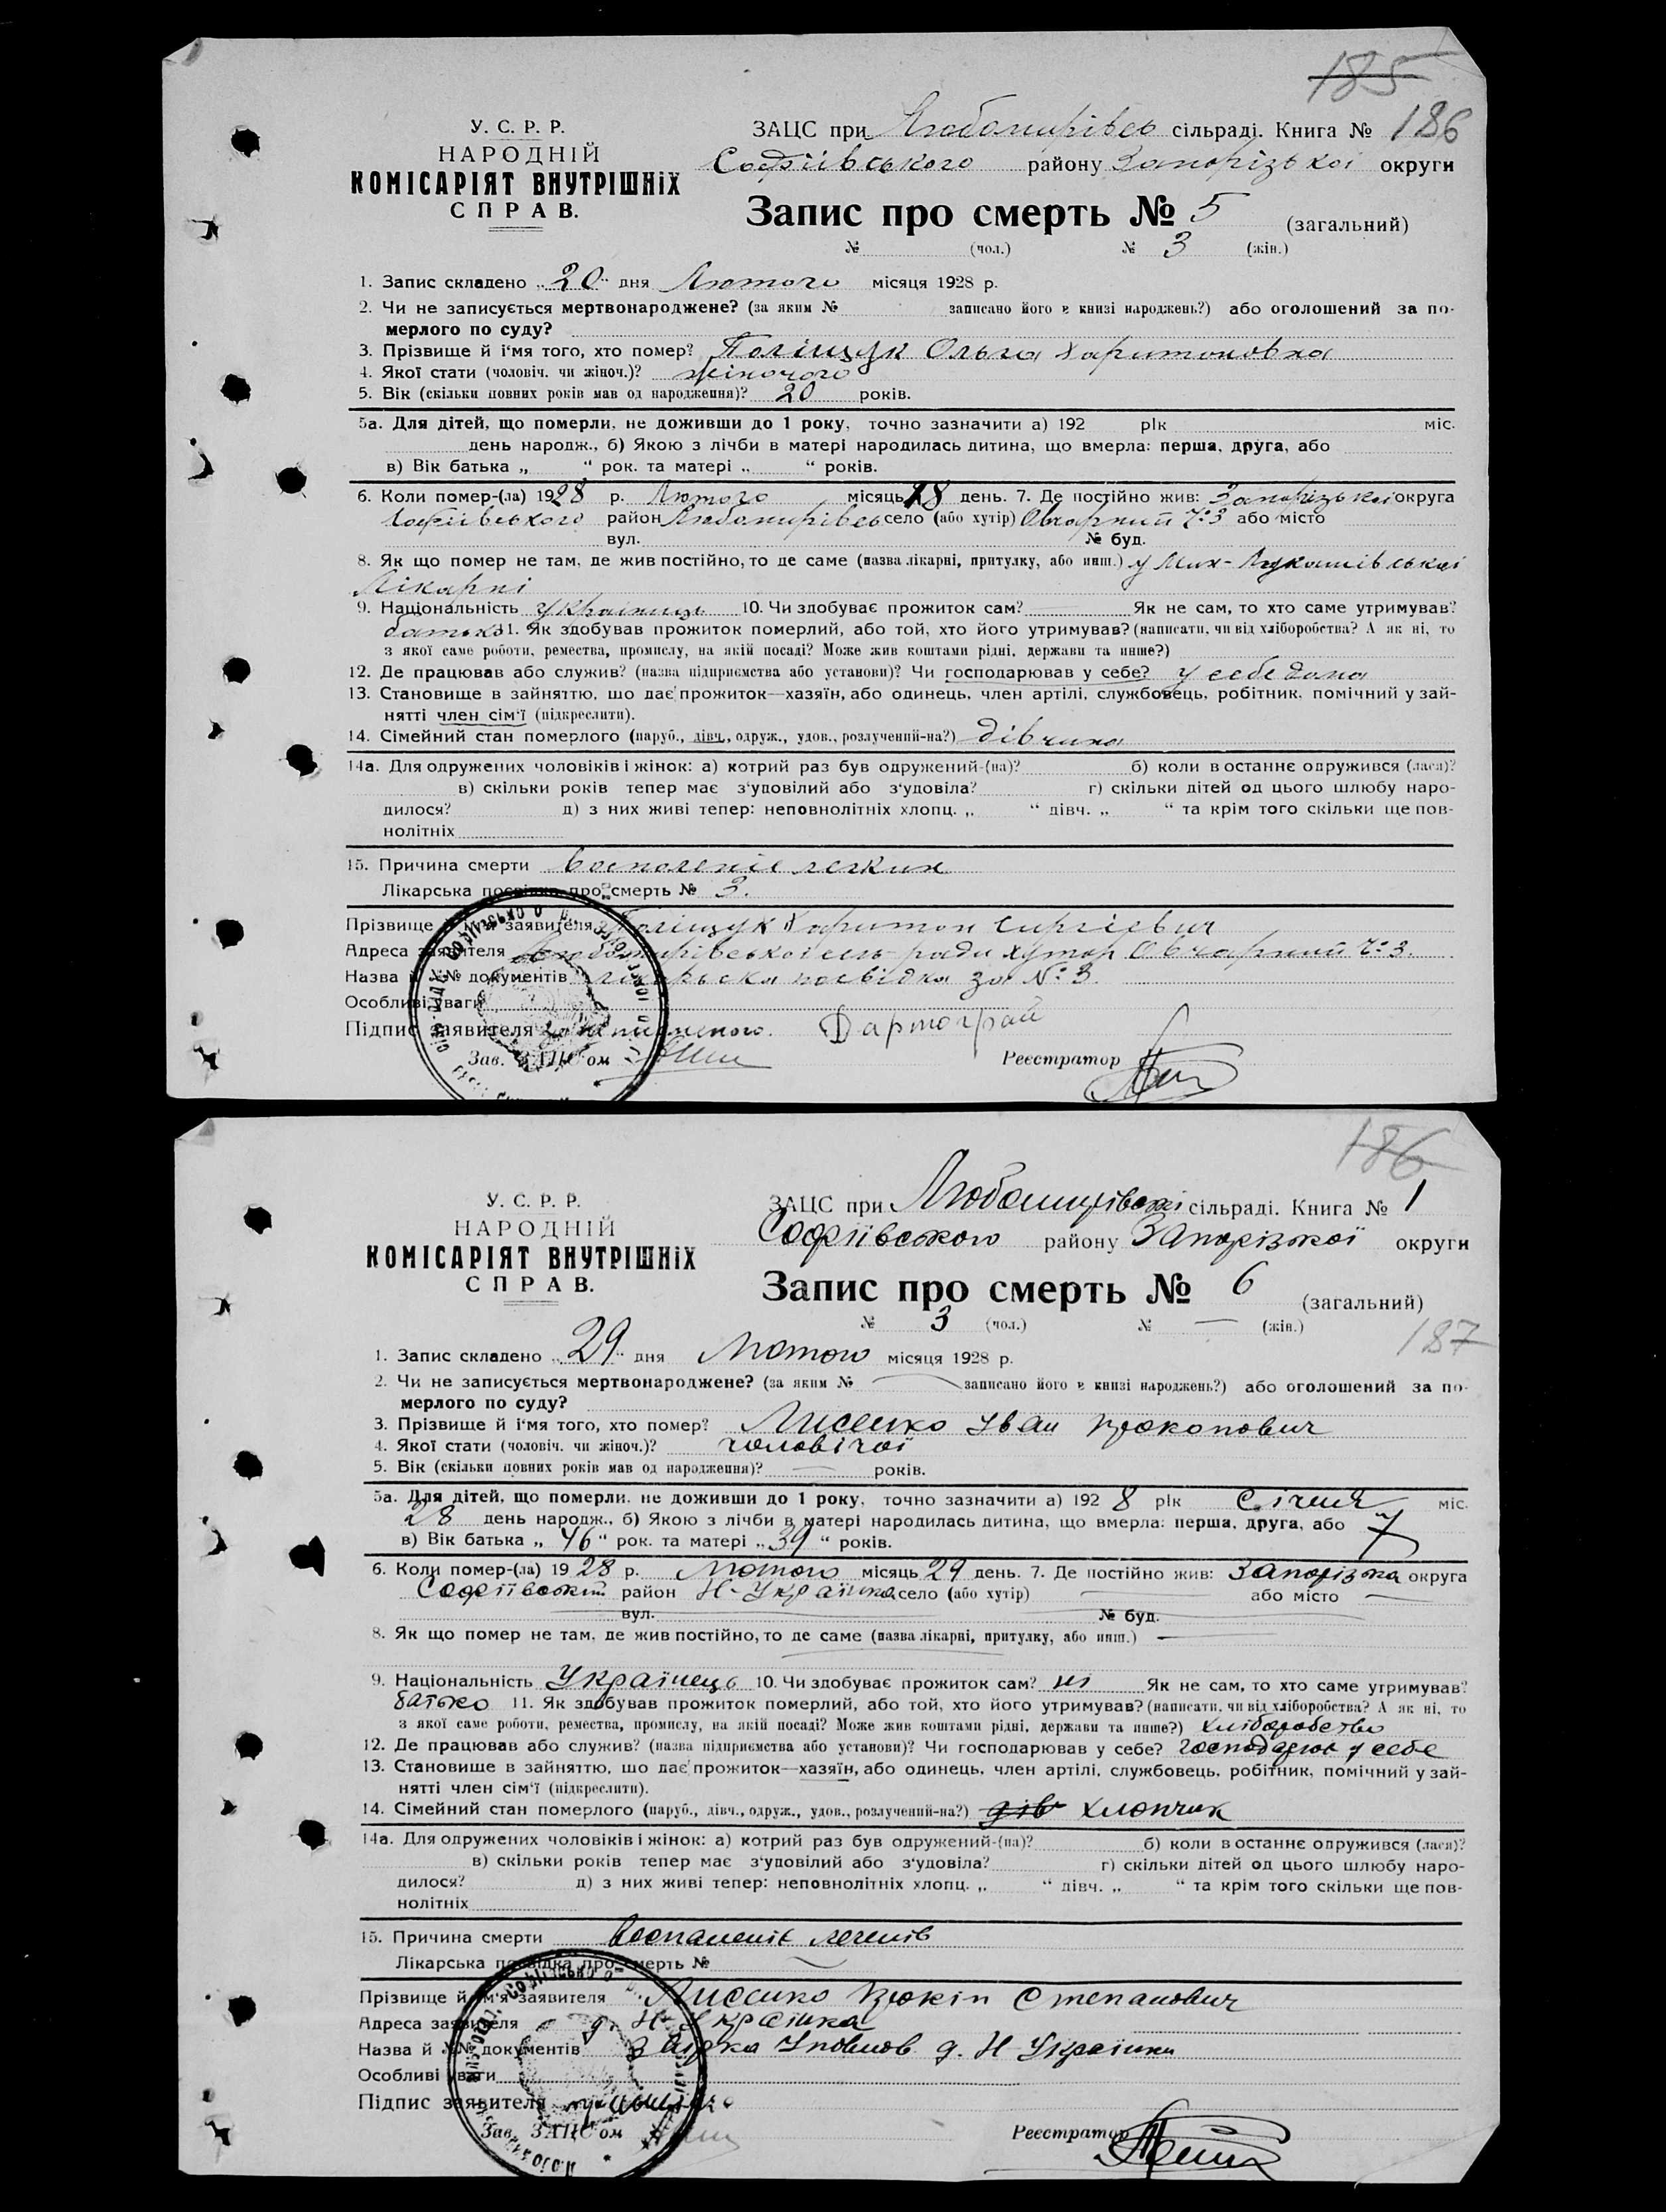 185
У. С. Р. Р.
НАРОДНІЙ
КОМІСАРІЯТ ВНУТРІШНІХ
СПРАВ.
ЗАЦС при Любомирівсь сільраді. Книга № 186
Софіївського району Запорізької округи
Запис про смерть № 5 (загальний)
№ (чол.) № 3 (жін.)
1. Запис складено „20“ дня Лютого місяця 1928 р.
2. Чи не записується мертвонароджене? (за яким № записано його в книзі народжень?) або оголошений за по-
мерлого по суду?
3. Прізвище й і'мя того, хто помер? Поліщук Ольга Харитоновна
4. Якої стати (чоловіч. чи жіноч.)? жіночого
5. Вік (скільки повних років мав од народження)? 20 років.
5а. Для дітей, що померли, не доживши до 1 року, точно зазначити а) 192 рік міс.
день народж., б) Якою з лічби в матері народилась дитина, що вмерла: перша, друга, або
в) Вік батька „ “ рок. та матері „ “ років.
6. Коли помер-(ла) 1928 р. Лютого місяць 18 день. 7. Де постійно жив: Запорізької округа
Софіївського район Любомирівсь село (або хутір) Овчарний Ч:3 або місто
вул. № буд.
8. Як що помер не там, де жив постійно, то де саме (назва лікарні, притулку, або инш.) у Мих-Лукашівської
Лікарні
9. Національність українець 10. Чи здобуває прожиток сам? Як не сам, то хто саме утримував?
батько 11. Як здобував прожиток померлий, або той, хто його утримував? (написати, чи від хліборобства? А як ні, то
з якої саме роботи, ремества, промислу, на якій посаді? Може жив коштами рідні, держави та инше?)
12. Де працював або служив? (назва підприємства або установи)? Чи господарював у себе? у себе дома
13. Становище в зайняттю, що дає прожиток—хазяїн, або одинець, член артілі, службовець, робітник, помічний у зай-
нятті член сім'ї (підкреслити).
14. Сімейний стан померлого (паруб., дівч., одруж., удов., розлучений-на?) дівчина
14а. Для одружених чоловіків і жінок: а) котрий раз був одружений-(на)? б) коли востаннє одружився (лася)?
в) скільки років тепер має з'удовілий або з'удовіла? г) скільки дітей од цього шлюбу наро-
дилося? д) з них живі тепер: неповнолітніх хлопц. „ “ дівч. „ “ та крім того скільки ще пов-
нолітніх
15. Причина смерти восполеніе легких
Лікарська посвідка про смерть № 3.
Прізвище й ім'я заявителя Поліщук Харитон Сиргієвич
Адреса заявителя Любомирівської сель-ради хутор Овчарний Ч:3.
Назва й №№ документів лікарьска посвідка за №:3.
Особливі уваги
Підпис заявителя
Зав. ЗАЦС'ом Реєстратор
186
У. С. Р. Р.
НАРОДНІЙ
КОМІСАРІЯТ ВНУТРІШНІХ
СПРАВ.
ЗАЦС при Любомирівскі сільраді. Книга № 1
Софіївського району Запорізької округи
Запис про смерть № 6 (загальний)
№ 3 (чол.) № — (жін.)
187
1. Запис складено „29“ дня Лютого місяця 1928 р.
2. Чи не записується мертвонароджене? (за яким № — записано його в книзі народжень?) або оголошений за по-
мерлого по суду?
3. Прізвище й і'мя того, хто помер? Лисенко Іван Прокопович
4. Якої стати (чоловіч. чи жіноч.)? чоловічої
5. Вік (скільки повних років мав од народження)? — років.
5а. Для дітей, що померли, не доживши до 1 року, точно зазначити а) 1928 рік Січня міс.
28 день народж., б) Якою з лічби в матері народилась дитина, що вмерла: перша, друга, або 7
в) Вік батька „46“ рок. та матері „39“ років.
6. Коли помер-(ла) 1928 р. Лютого місяць 29 день. 7. Де постійно жив: Запорізька округа
Софіївський район Н-Українка село (або хутір) — або місто —
вул. — № буд. —
8. Як що помер не там, де жив постійно, то де саме (назва лікарні, притулку, або инш.) —
9. Національність Українець 10. Чи здобуває прожиток сам? ні Як не сам, то хто саме утримував?
батько 11. Як здобував прожиток померлий, або той, хто його утримував? (написати, чи від хліборобства? А як ні, то
з якої саме роботи, ремества, промислу, на якій посаді? Може жив коштами рідні, держави та инше?) хліборобство
12. Де працював або служив? (назва підприємства або установи)? Чи господарював у себе? господарює у себе
13. Становище в зайняттю, що дає прожиток—хазяїн, або одинець, член артілі, службовець, робітник, помічний у зай-
нятті член сім'ї (підкреслити).
14. Сімейний стан померлого (паруб., дівч., одруж., удов., розлучений-на?) дів хлопчик
14а. Для одружених чоловіків і жінок: а) котрий раз був одружений-(на)? б) коли востаннє одружився (лася)?
в) скільки років тепер має з'удовілий або з'удовіла? г) скільки дітей од цього шлюбу наро-
дилося? д) з них живі тепер: неповнолітніх хлопц. „ “ дівч. „ “ та крім того скільки ще пов-
нолітніх
15. Причина смерти воспаленіє легенів
Лікарська посвідка про смерть № —
Прізвище й ім'я заявителя Лисенко Прокіп Степанович
Адреса заявителя д. Н-Українка
Назва й №№ документів Заявка Уповнов. д. Н-Українки
Особливі уваги
Підпис заявителя
Зав. ЗАЦС'ом Реєстратор